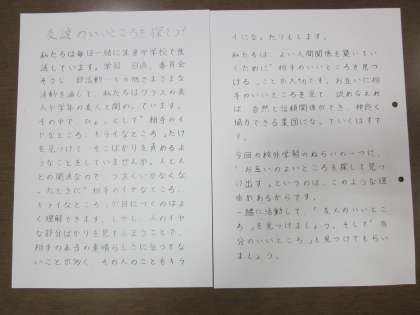 友達のいいところを探しワ
私たちは毎日一緒に末吉中学校で生
活しています。学習、日直、委員会
そうじ、部活動、その他さまざまな
活動を通して、私たちはクラスの友
人や学年の友人と関わっています。
その中で、ひょっとして"相手のイ
ヤなところ、キライなところ"だけ
を見つけて、そこばかりを責めるよ
うなことをしていませんか。人と人
との関係なので、うまくいかなくな
ったときに"相手のイヤなところ、
キライなところ"が目につくのはよ
く理解できます。しかし、人のイヤ
な部分ばかりを見てしまうことで、
相手の本当の素晴らしさに気づけな
いことが多く、その人のこともキラ
イになったりもします。
私たちは、よい人間関係を築いてい
くために"相手のいいところを見つ
ける"ことが大切です。お互いに相
手のいいところを見て、認め合えれ
ば、自然と信頼関係ができ、仲良く
協力できる集団になっていくはずで
す。
今回の校外学習のねらいの一つに、
"お互いのよいところを探して見つ
け出す"というのは、このような理
由があるからです。
一緒に活動して、"友人のいいとこ
ろ"を見つけましょう。そして"自
分のいいところ"も見つけてもらい
ましょう。